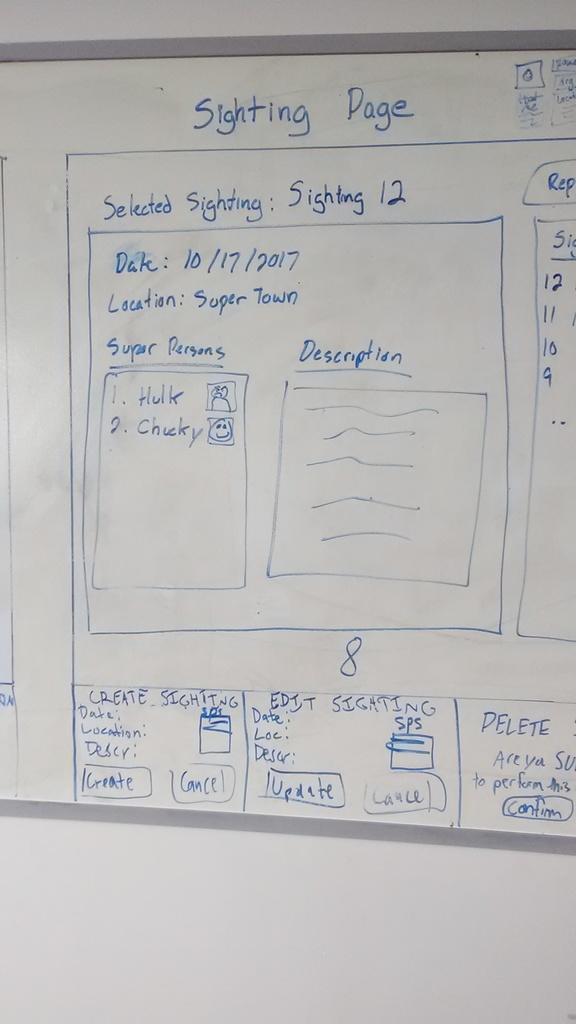 Sighting Page
Selected Sighting: Sighting 12
Rep
Date: 10/17/2017
Location: Super Town
Super Persons
Description
1. Hulk
2. Chucky
Sig
12
11
10
9
..
8
CREATE SIGHTING
Date:
Location:
Descr:
SPS
Create
Cancel
EDIT SIGHTING
Date:
Loc:
Descr:
SPS
Update
Cancel
DELETE
Are you SU
to perform this
Confirm